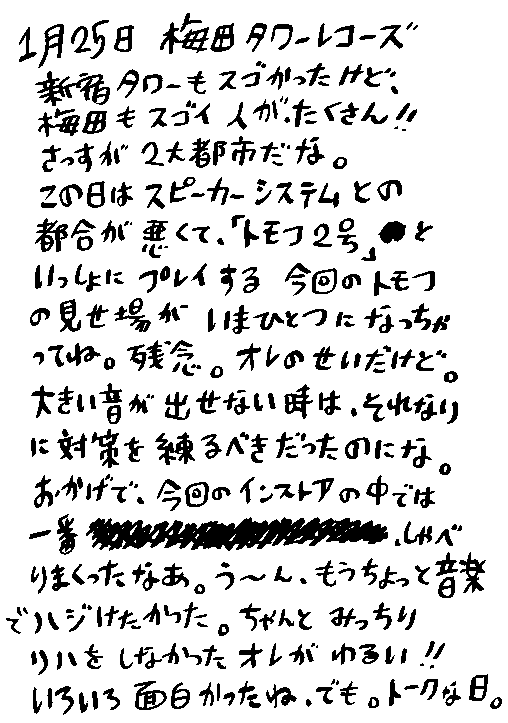 1月25日 梅田タワーレコーズ
新宿タワーもスゴかったけど、
梅田もスゴイ人が、たくさん!!
さっすが2大都市だな。
この日はスピーカーシステムとの
都合が悪くて、「トモフ2号」と
いっしょにプレイする今回のトモフ
の見せ場がいまひとつになっちゃ
ってね。残念。オレのせいだけど。
大きい音が出せない時は、それなり
に対策を練るべきだったのにな。
おかげで、今回のインストアの中では
一番、しゃべ
りまくったなあ。う〜ん、もうちょっと音楽
でハジけたかった。ちゃんとみっちり
リハをしなかったオレがゆるい!!
いろいろ面白かったね、でも。トークな日。